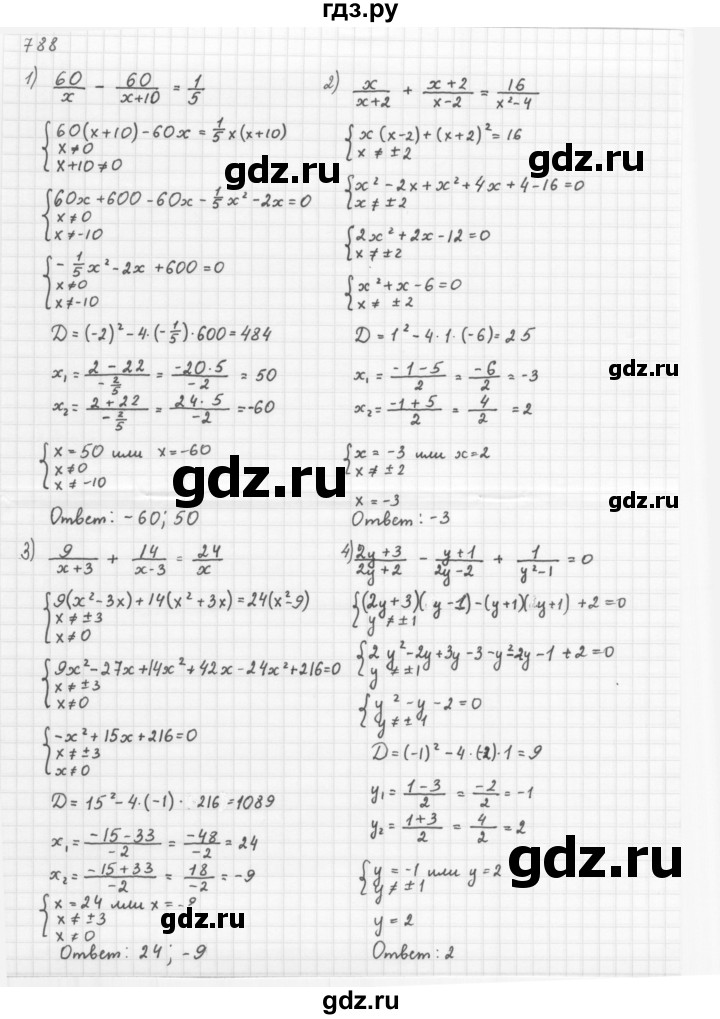 гдз.ру
788
1) 60/x - 60/(x+10) = 1/5
{60(x+10)-60x = 1/5 x(x+10)
x≠0
x+10≠0
{60x+600-60x-1/5 x²-2x=0
x≠0
x≠-10
{-1/5 x²-2x+600=0
x≠0
x≠-10
D=(-2)²-4·(-1/5)·600=484
x₁= (2-22)/(-2/5) = (-20·5)/(-2) = 50
x₂= (2+22)/(-2/5) = (24·5)/(-2) =-60
{x=50 или x=-60
x≠0
x≠-10
Ответ: -60; 50
2) x/(x+2) + (x+2)/(x-2) = 16/(x²-4)
{x(x-2)+(x+2)²=16
x≠±2
{x²-2x+x²+4x+4-16=0
x≠±2
{2x²+2x-12=0
x≠±2
{x²+x-6=0
x≠±2
D=1²-4·1·(-6)=25
x₁= (-1-5)/2 = -6/2 = -3
x₂= (-1+5)/2 = 4/2 = 2
{x=-3 или x=2
x≠±2
x=-3
Ответ: -3
3) 9/(x+3) + 14/(x-3) = 24/x
{9(x²-3x)+14(x²+3x)=24(x²-9)
x≠±3
x≠0
{9x²-27x+14x²+42x-24x²+216=0
x≠±3
x≠0
{-x²+15x+216=0
x≠±3
x≠0
D=15²-4·(-1)·216=1089
x₁= (-15-33)/(-2) = -48/(-2) = 24
x₂= (-15+33)/(-2) = 18/(-2) = -9
{x=24 или x=-9
x≠±3
x≠0
Ответ: 24; -9
4) (2y+3)/(2y+2) - (y+1)/(2y-2) + 1/(y²-1) = 0
{(2y+3)(y-1)-(y+1)(y+1)+2=0
y≠±1
{2y²-2y+3y-3-y²-2y-1+2=0
y≠±1
{y²-y-2=0
y≠±1
D=(-1)²-4·(-2)·1=9
y₁= (1-3)/2 = -2/2 = -1
y₂= (1+3)/2 = 4/2 = 2
{y=-1 или y=2
y≠±1
y=2
Ответ: 2
gdz.ru
gdz.ru
gdz.ru
gdz.ru
gdz.ru
gdz.ru
gdz.ru
gdz.ru
gdz.ru